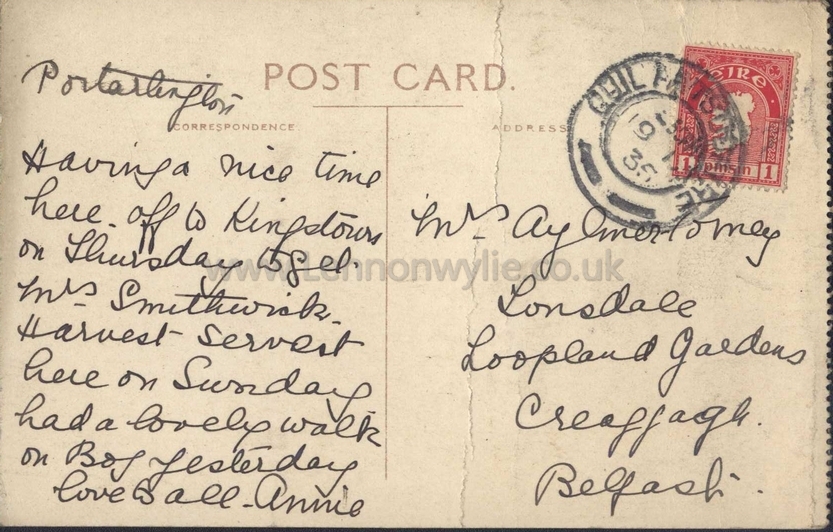 Portarlington
POST CARD.
CORRESPONDENCE
ADDRESS
Having a nice time
here. off to Kingstown
on Thursday to see
Mrs Smithwick.
Harvest Servest
here on Sunday
had a lovely walk
on Bog yesterday
love to all - Annie
Mrs Aylmer Tomey
Lonsdale
Loopland Gardens
Creaggagh.
Belfast.
ÉIRE
1 1
19
35
www.Lennonwylie.co.uk